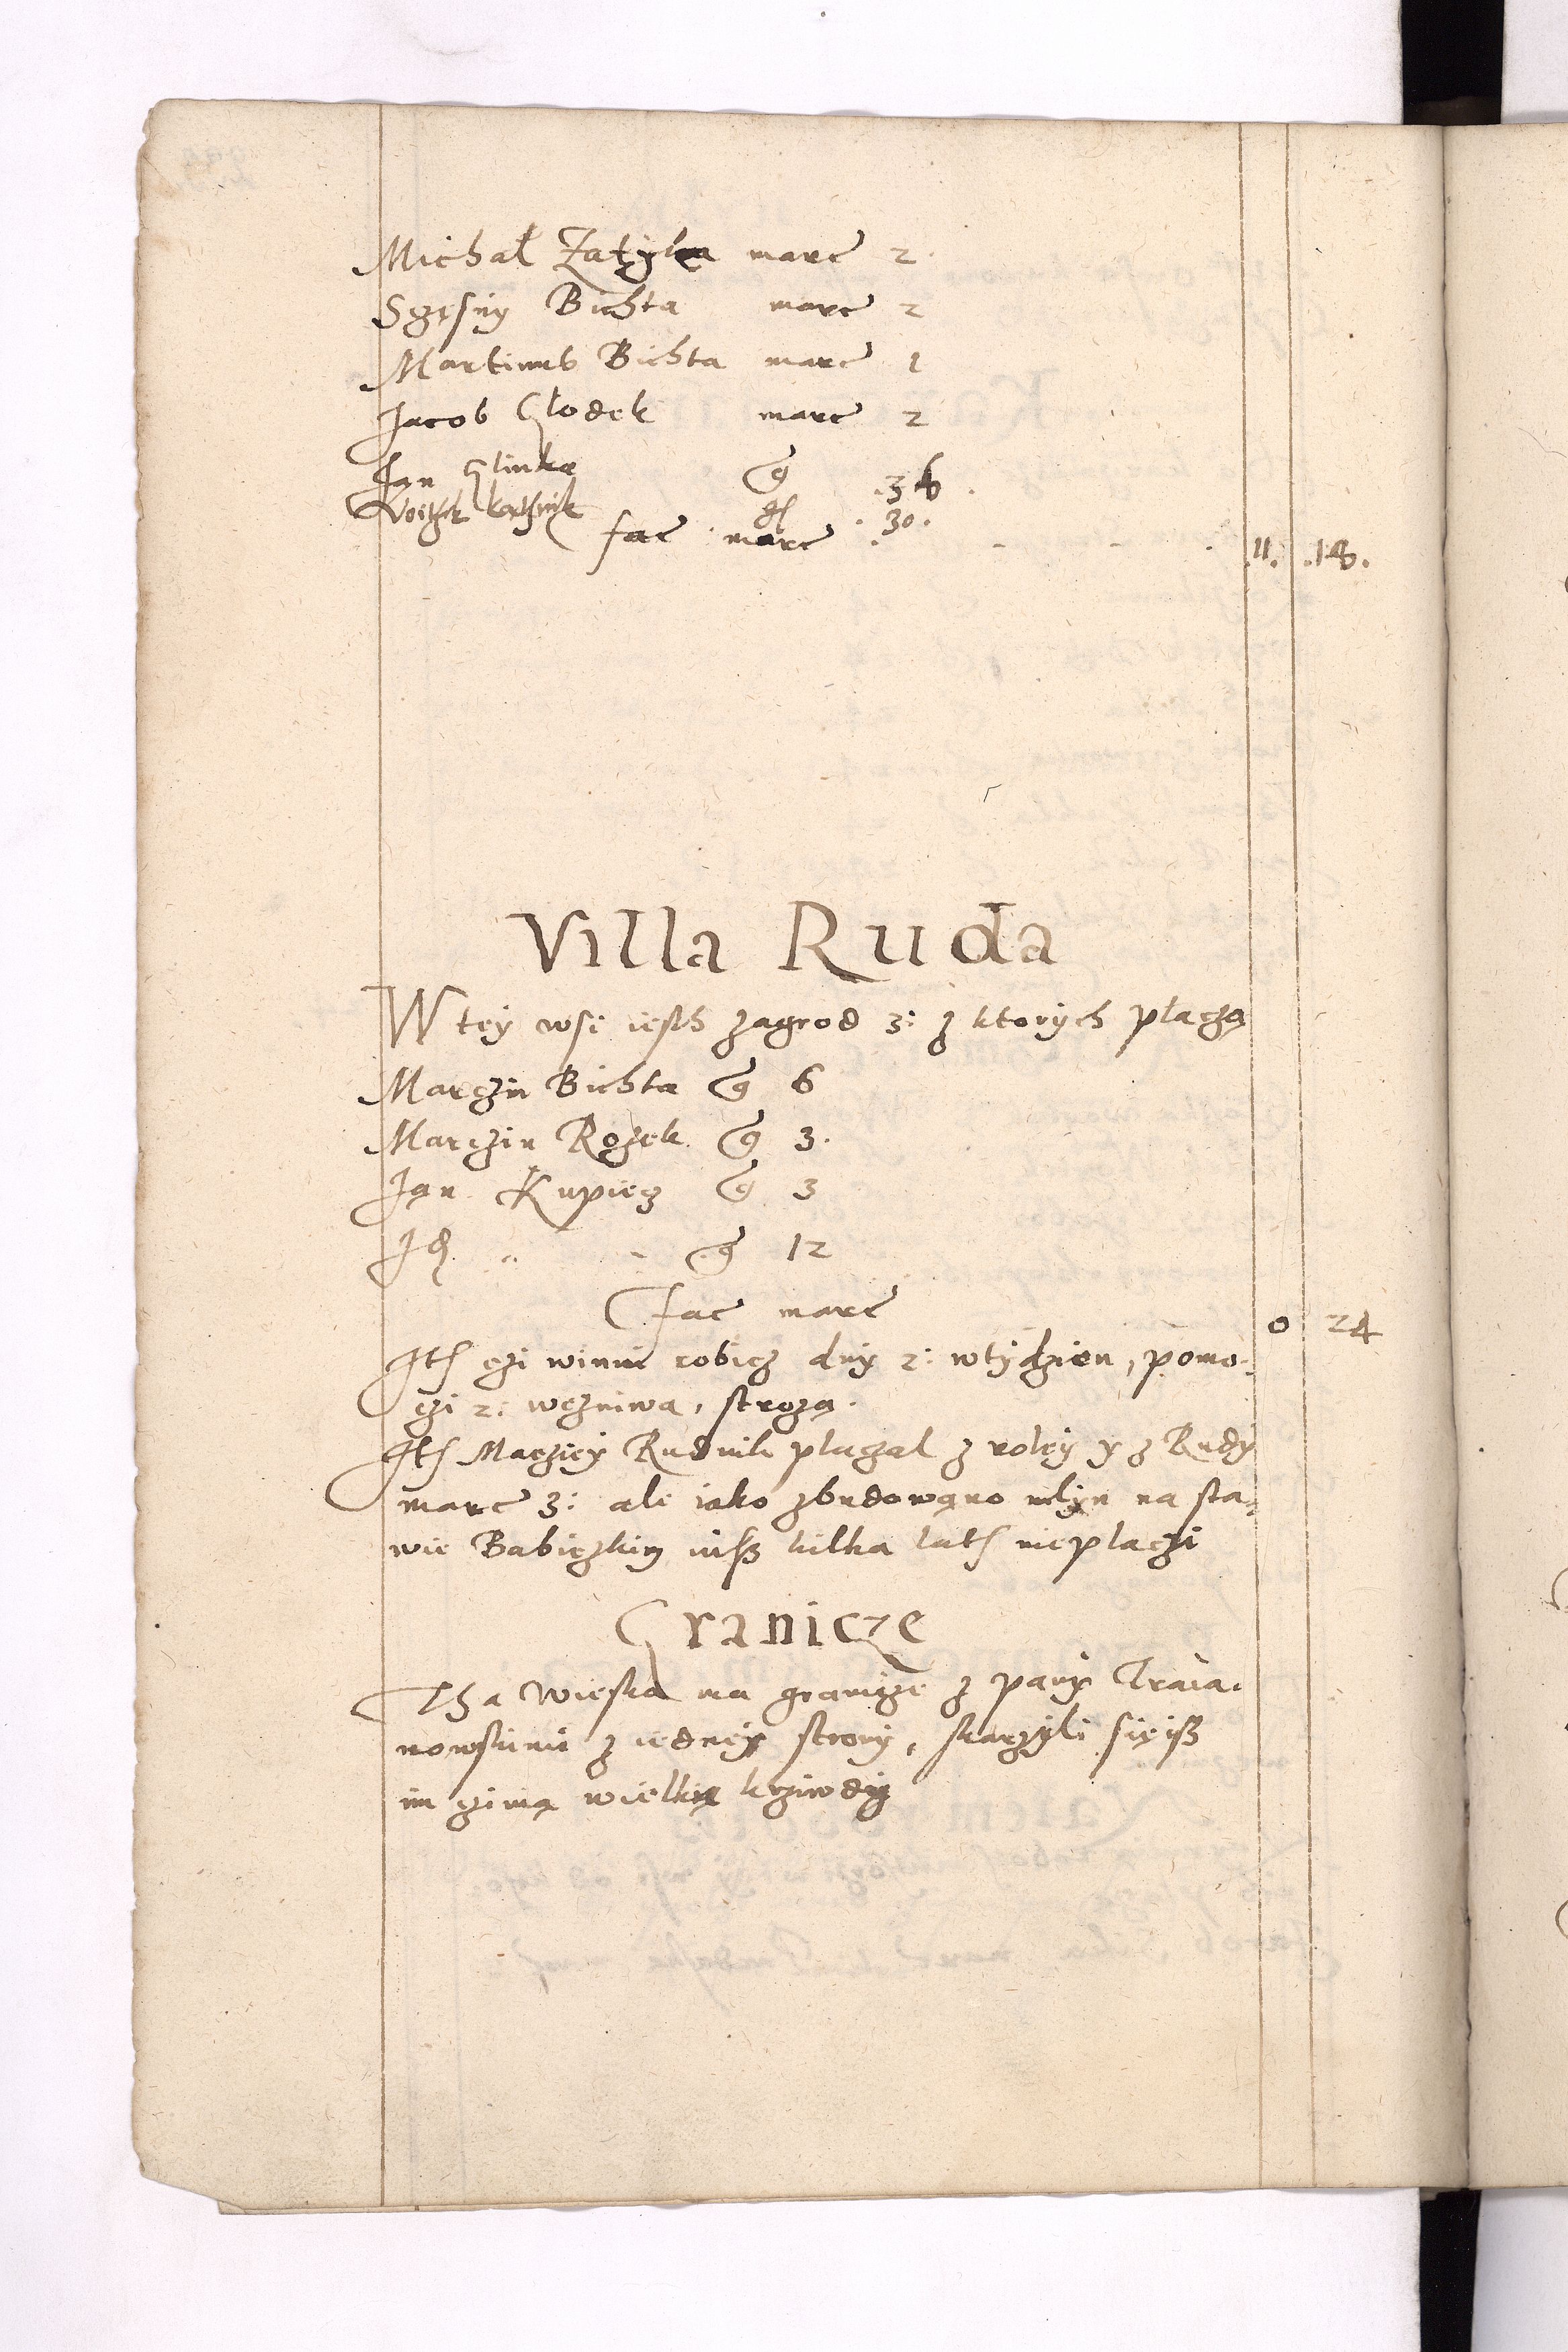 Michał Zatyka marc 2
Sczesny Bichta marc 2
Martinus Bichta marc 1
Jacob Głodek marc 2
Jan Glinka g 36
Woitek g 30
fac marc 11. 18.
Villa Ruda
W tey wsi iesth zagrod 3: z ktorych płaczą
Marczin Bichta g 6
Marczin Rożek g 3.
Jan Kupiecz g 3
g 12
fac marc 0 24
Ith czi winni robicz dny 2: w tydzien, pomo-
czi 2: wczniwa, strożą.
Ith Macziey Rudnik płaczał z roley y z Rudy
marc 3: ale iako zbudowano młyn na sta-
wie Babiczkim iusz kilka lath nie płaczi
Granicze
Tha Wieska ma granicze z pany Traia-
nowskimi z iedney strony, skarżyli się isz
im czinią wielkię krziwdy